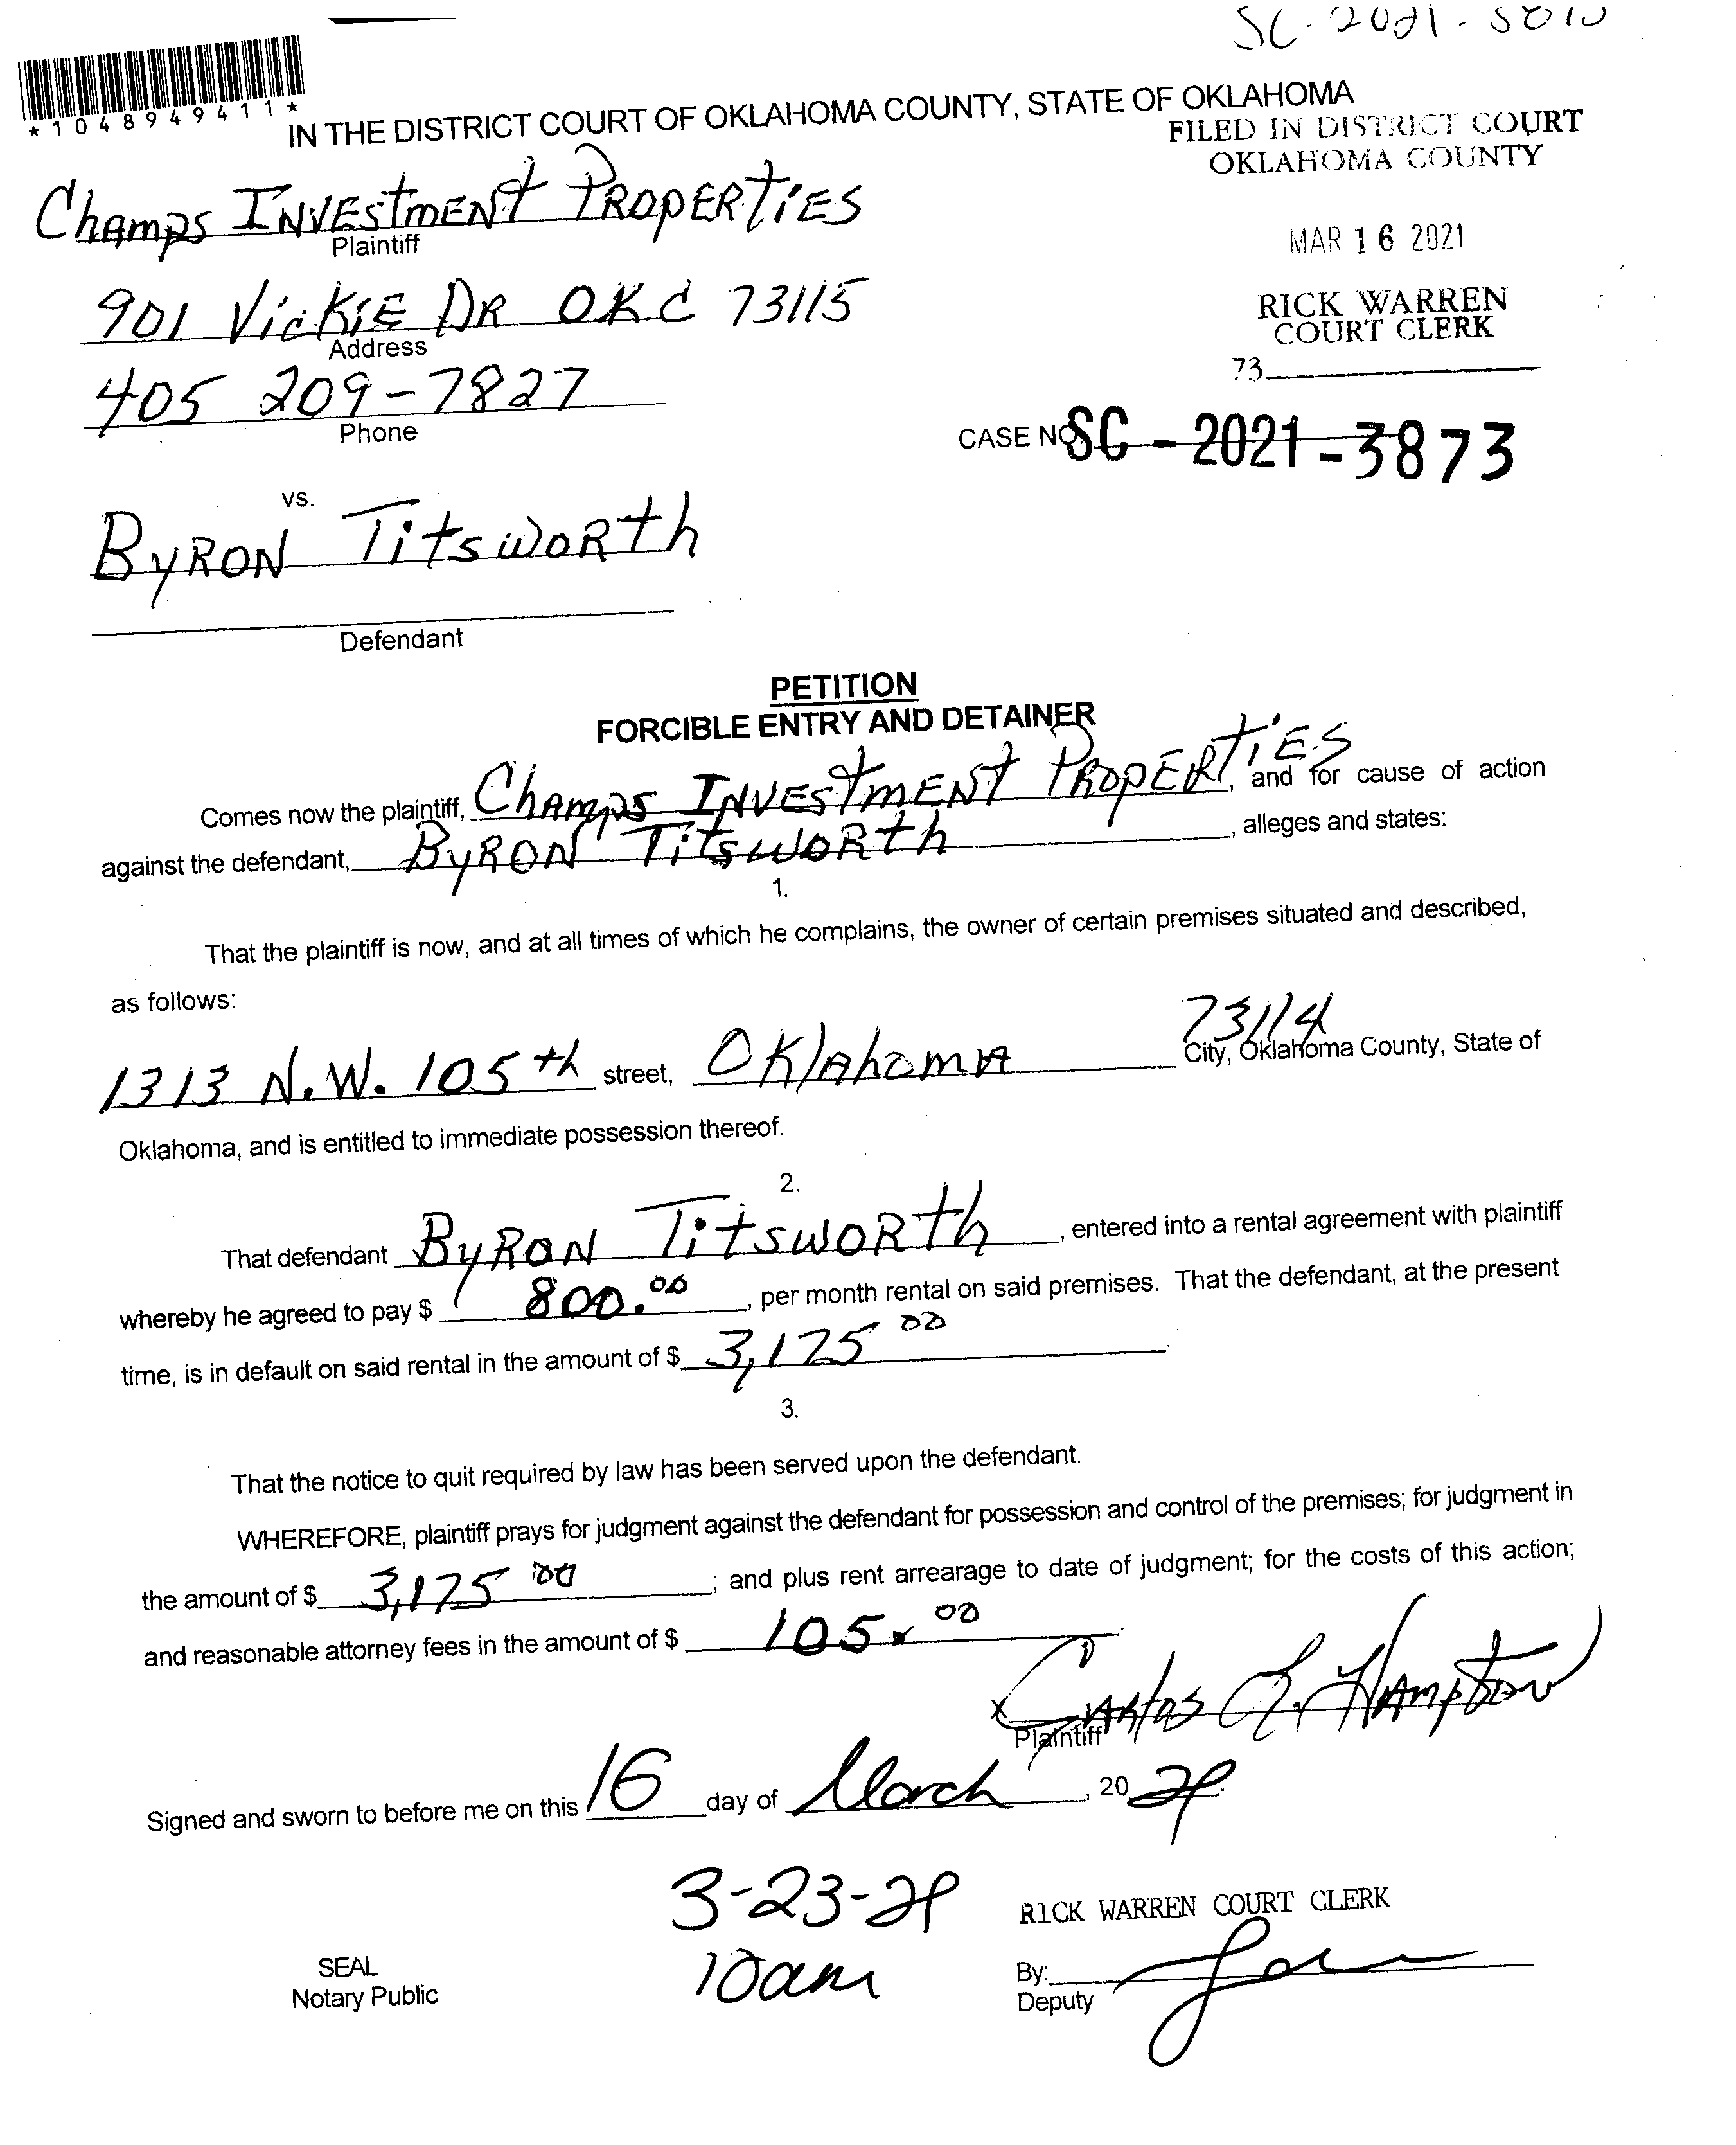 SC-2021-
*1048949411*
IN THE DISTRICT COURT OF OKLAHOMA COUNTY, STATE OF OKLAHOMA
FILED IN DISTRICT COURT
OKLAHOMA COUNTY
Champs Investment Properties
Plaintiff
MAR 16 2021
901 Vickie DR OKC 73115
Address
RICK WARREN
COURT CLERK
73
405 209-7827
Phone
CASE NO. SC-2021-3873
vs.
Byron Titsworth
Defendant
PETITION
FORCIBLE ENTRY AND DETAINER
Comes now the plaintiff, Champs Investment Properties, and for cause of action
against the defendant, Byron Titsworth, alleges and states:
1.
That the plaintiff is now, and at all times of which he complains, the owner of certain premises situated and described,
as follows:
73114
1313 N.W. 105th street, Oklahoma City, Oklahoma County, State of
Oklahoma, and is entitled to immediate possession thereof.
2.
That defendant Byron Titsworth, entered into a rental agreement with plaintiff
whereby he agreed to pay $ 800.00, per month rental on said premises. That the defendant, at the present
time, is in default on said rental in the amount of $ 3,175 00
3.
That the notice to quit required by law has been served upon the defendant.
WHEREFORE, plaintiff prays for judgment against the defendant for possession and control of the premises; for judgment in
the amount of $ 3,175 00; and plus rent arrearage to date of judgment; for the costs of this action;
and reasonable attorney fees in the amount of $ 105.00.
x Carlos L. Hampton
Plaintiff
Signed and sworn to before me on this 16 day of March, 2021.
3-23-21
10am
RICK WARREN COURT CLERK
SEAL
Notary Public
By:
Deputy